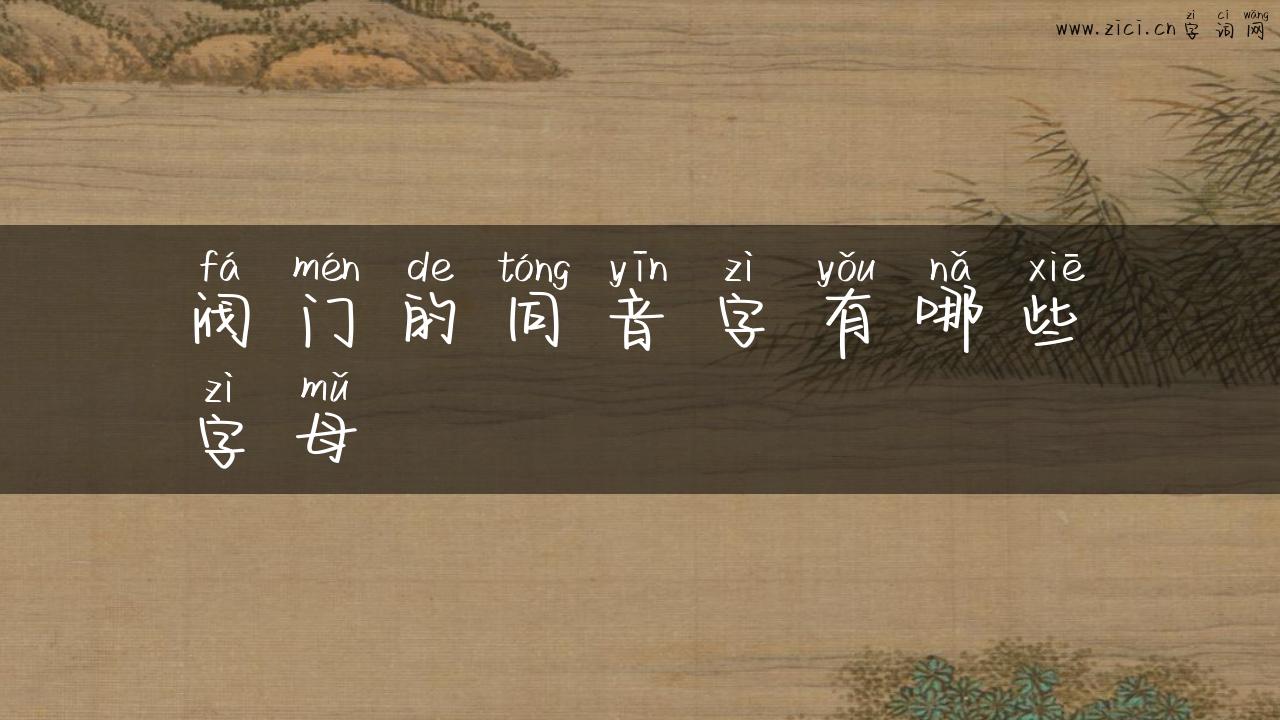 zì cí wǎng
www.zici.cn 字词网
fá mén de tóng yīn zì yǒu nǎ xiē
阀门的同音字有哪些
zì mǔ
字母